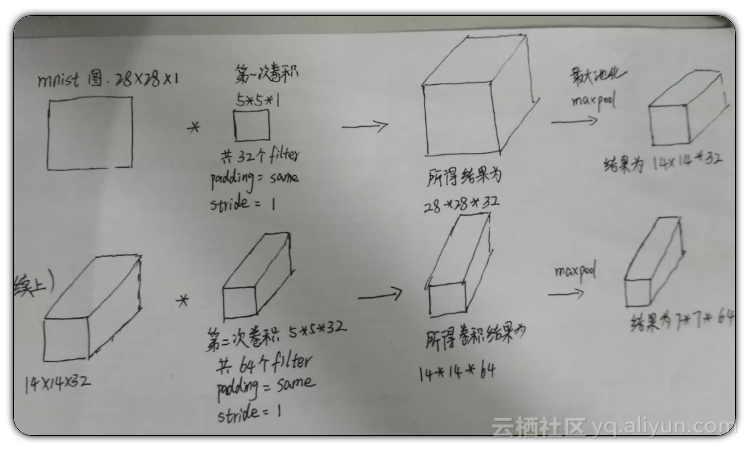 mnist 图. 28×28×1
第一次卷积
5*5*1
*
共32个filter
padding = same
stride = 1
所得结果为
28*28*32
最大池化
maxpool
结果为 14×14*32
续上)
14×14×32
*
第二次卷积 5*5*32
共64个filter
padding = same
stride = 1
所得卷积结果为
14*14*64
maxpool
结果为7*7*64
云栖社区 yq.aliyun.com